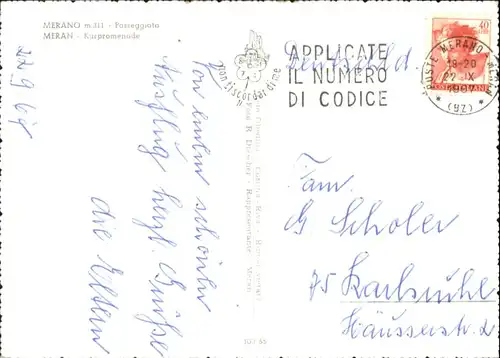 MERANO m.311 - Passeggiata
MERAN - Kurpromenade
22.9.67
Von einem schönen
Ausflug herzl. Grüße
die Eltern
Non ti scordar di me
APPLICATE
IL NUMERO
DI CODICE
POSTE MERANO
18-20
22.IX
1967
* (BZ) *
40
POSTE ITALIANE
Deutschld.
Fam.
G Scholer
75 Karlsruhe
Häusserstr. 2